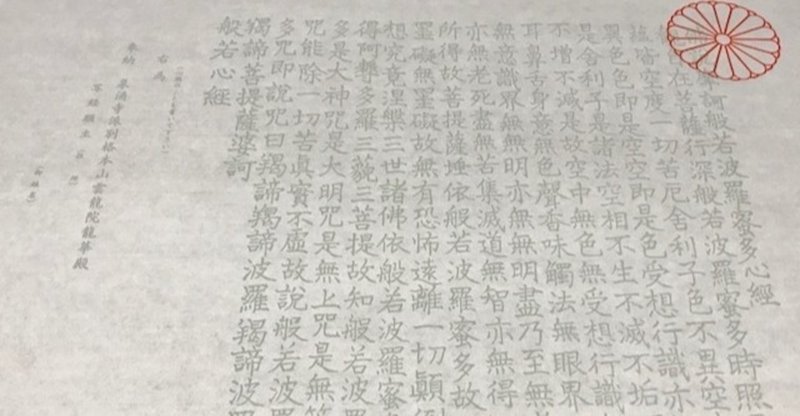 訶般若波羅蜜多心經
在菩薩行深般若波羅蜜多時照
蘊皆空度一切苦厄舍利子色不異空
異色色即是空空即是色受想行識亦
是舍利子是諸法空相不生不滅不垢
不增不減是故空中無色無受想行識
耳鼻舌身意無色聲香味觸法無眼界
無意識界無無明亦無無明盡乃至無
亦無老死盡無苦集滅道無智亦無得
所得故菩提薩埵依般若波羅蜜多故
罣礙無罣礙故無有恐怖遠離一切顛
想究竟涅槃三世諸佛依般若波羅蜜
得阿耨多羅三藐三菩提故知般若波
多是大神咒是大明咒是無上咒是無
咒能除一切苦真實不虛故說般若波
多咒即說咒曰羯諦羯諦波羅羯諦波
羯諦菩提薩婆訶
般若心經
右為
奉納 泉涌寺派別格本山雲龍院龍華殿
写経願主